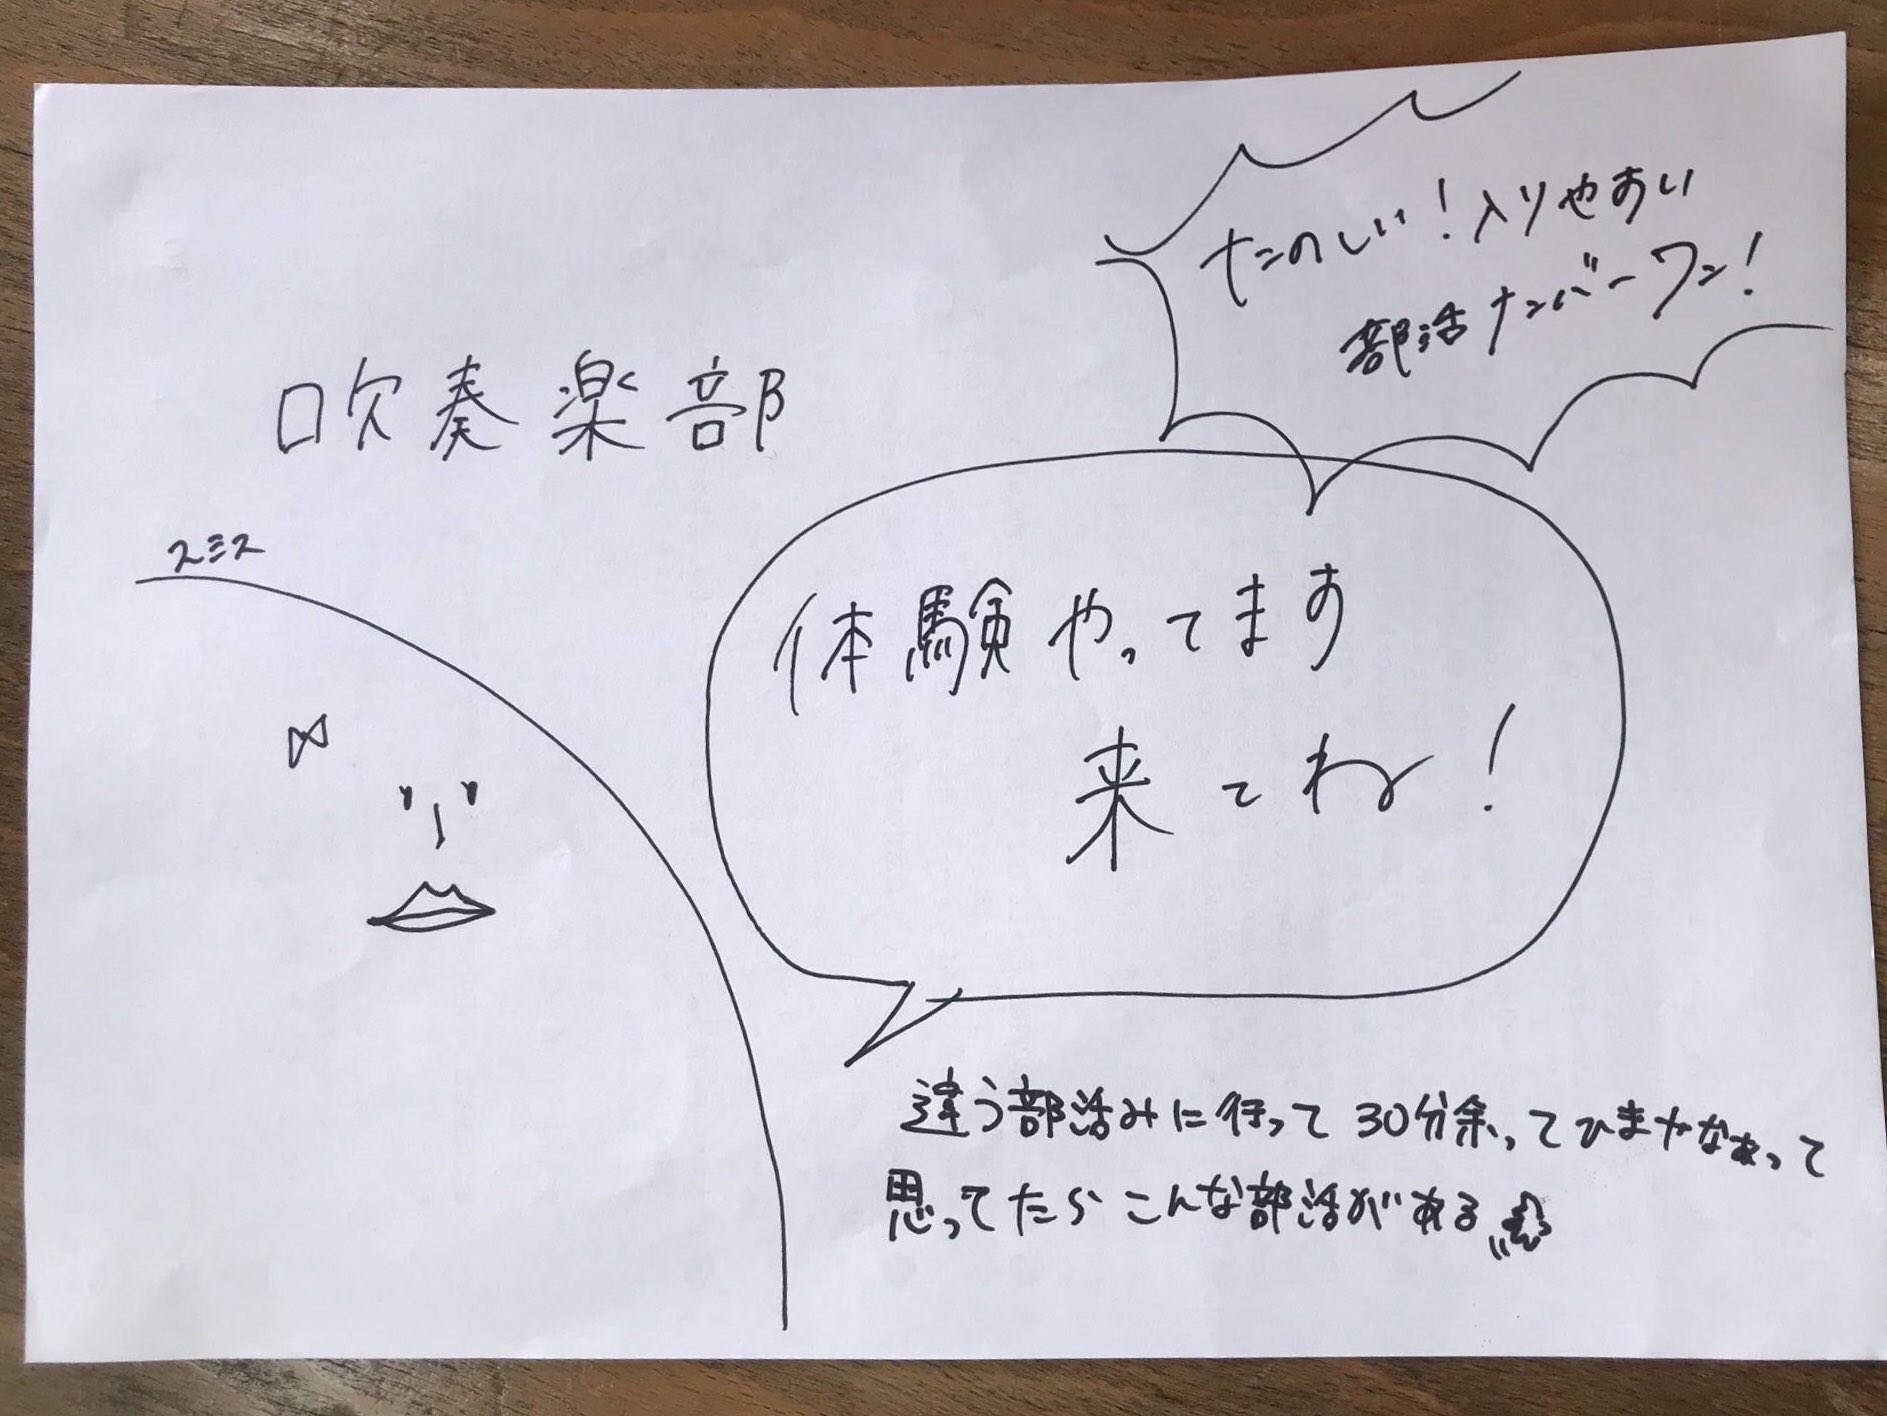 たのしい!入りやすい
部活ナンバーワン!
吹奏楽部
スミス
体験やってます
来てね!
違う部活みに行って30分余ってひまやなあって
思ってたらこんな部活がある